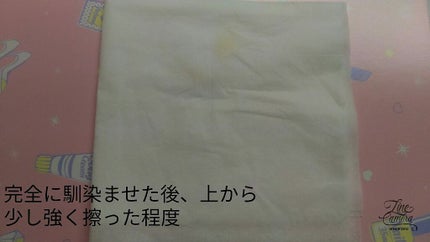 完全に馴染ませた後、上から
少し強く擦った程度
Line
Camera